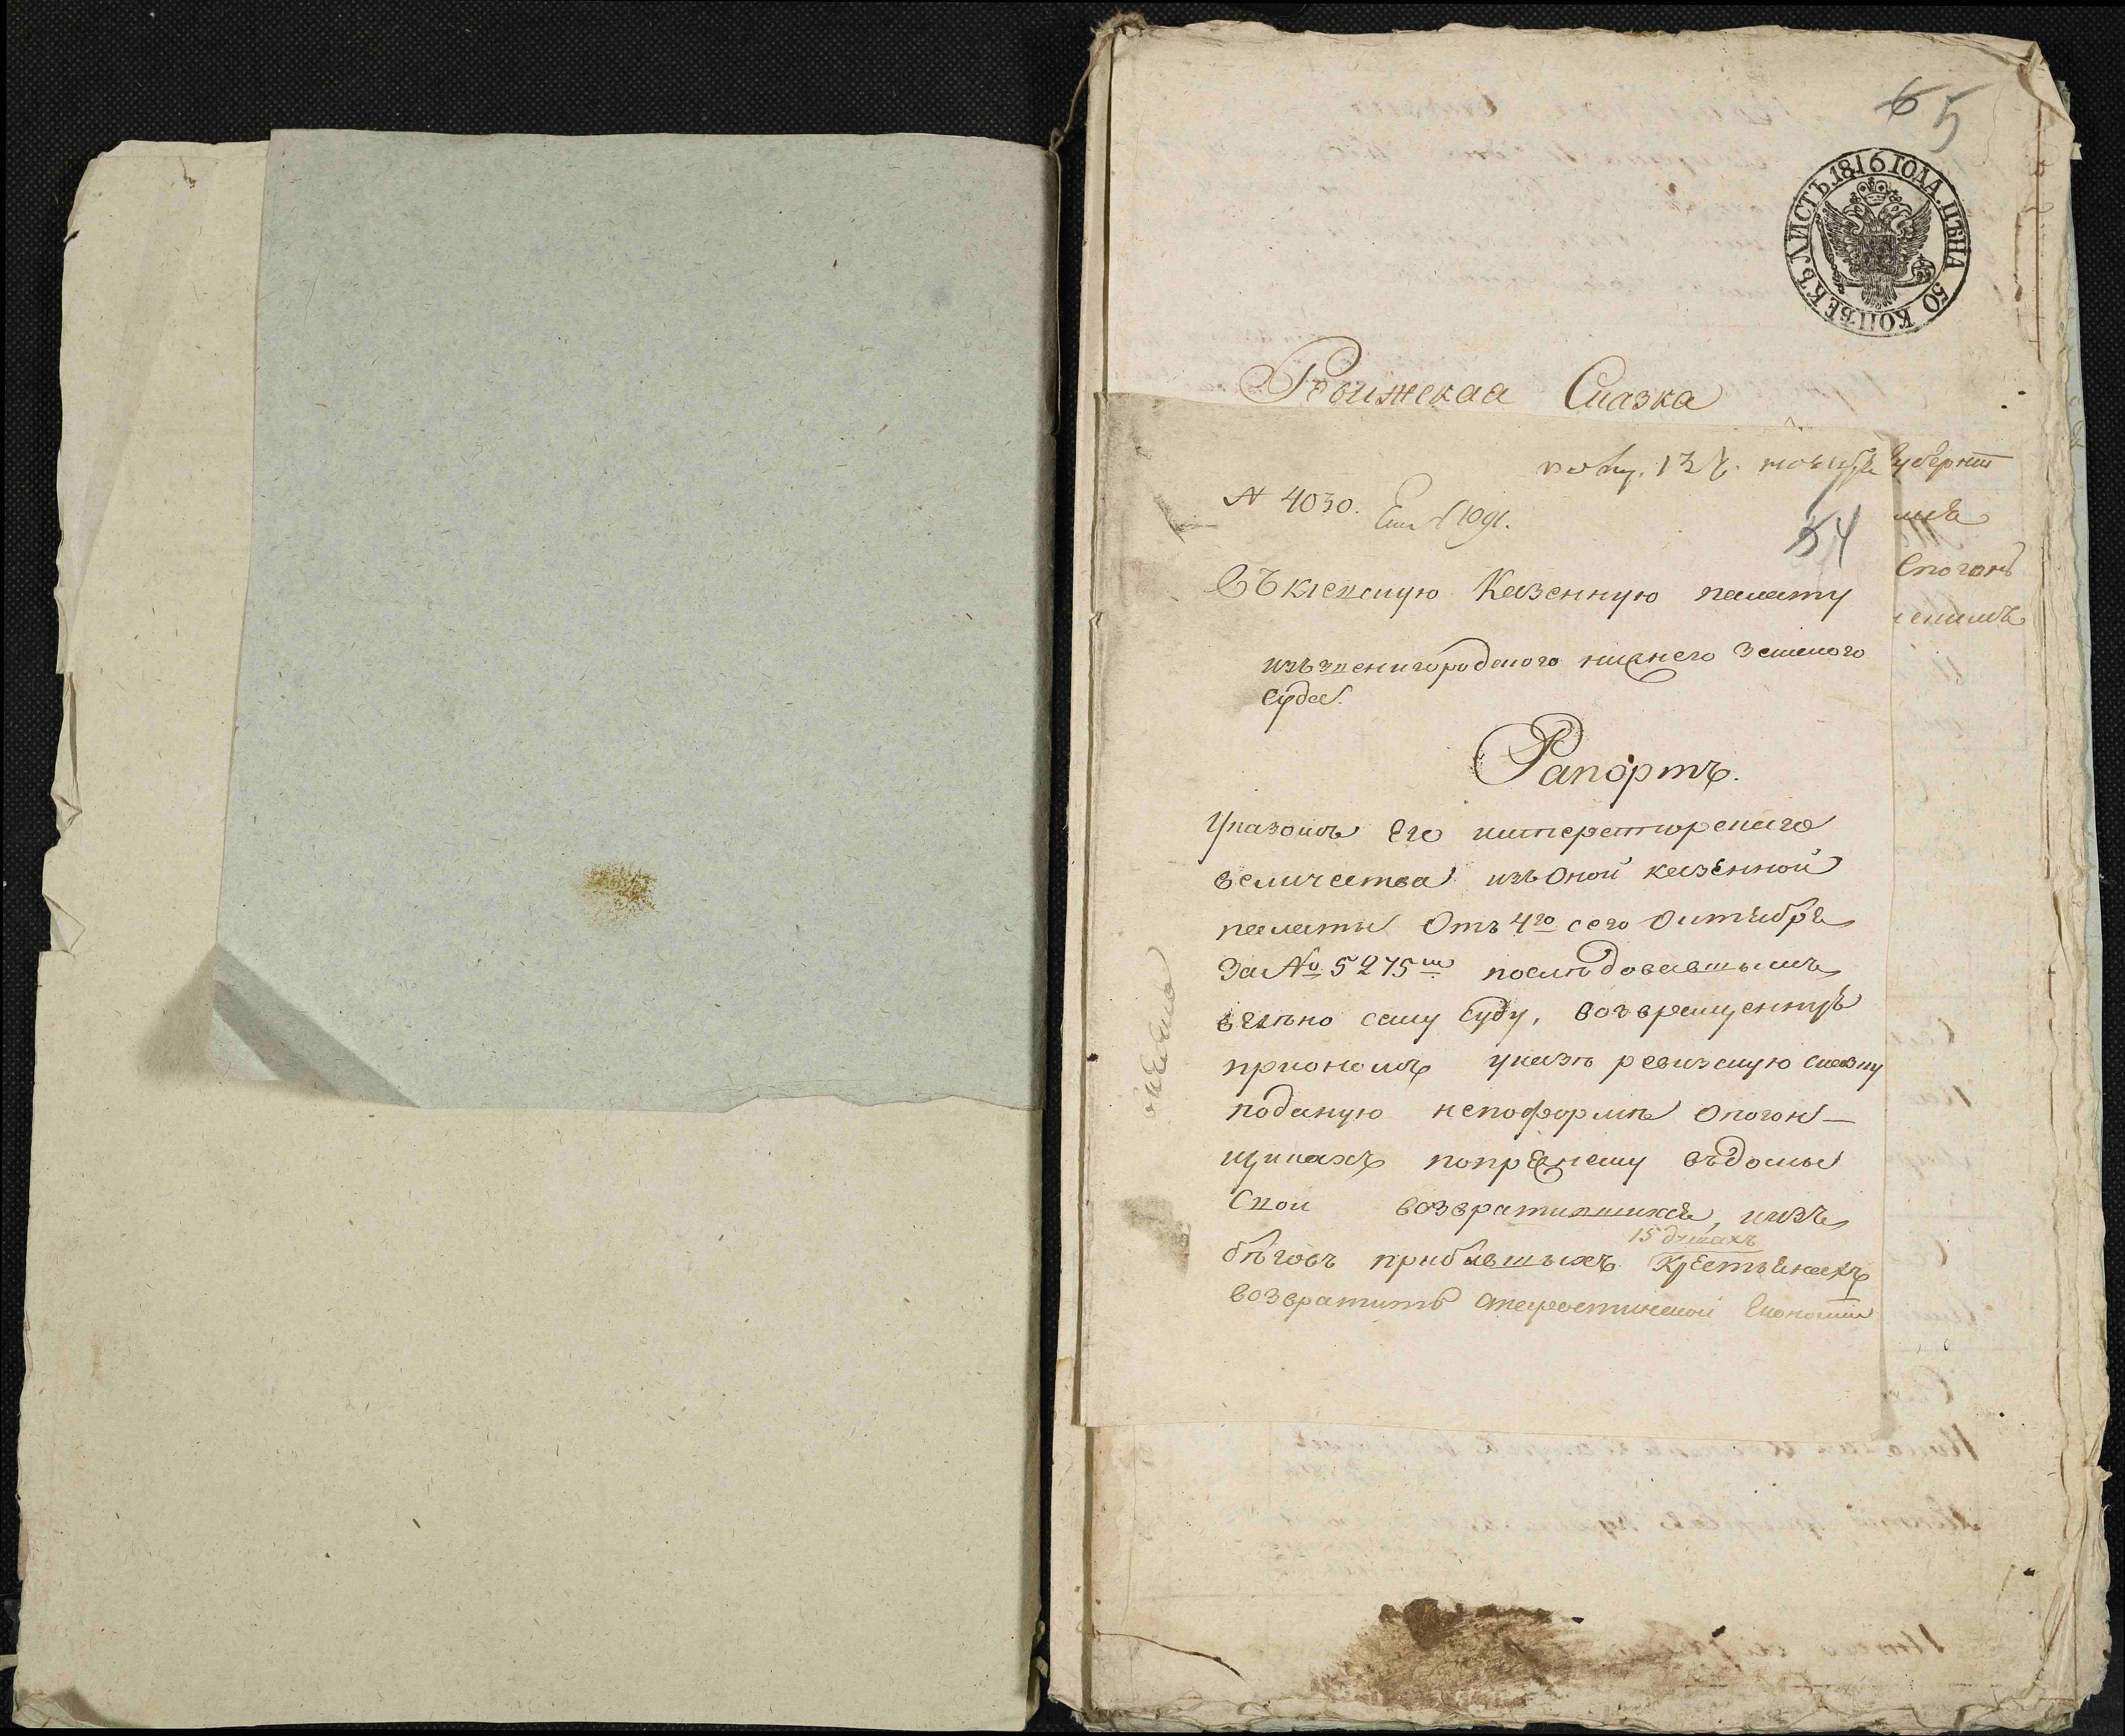 6 5
ЛИСТЪ 1816 ГОДА. ЦѢНА 50 КОПѢЕКЪ
Ревижская Сказка
полу. 13 ноября
губерніи
№ 4030.
54
Въ киевскую Казенную палату
изъ звенигородского нижнего Земского
Суда.
Рапортъ.
Указомъ Его императорскаго
величества изъ Оной казенной
палаты Отъ 4го сего Октября
За № 5275м последовавшымъ
велѣно сему Суду, возвращенную
приономъ указѣ ревизскую сказку
поданую непоформѣ Опогон-
щикахъ попрежнему въдомы
Свои возвратившихся, иизъ
15 душахъ
бѣговъ прибывшыхъ Крестьянахъ
возвратить старостинской Економіи